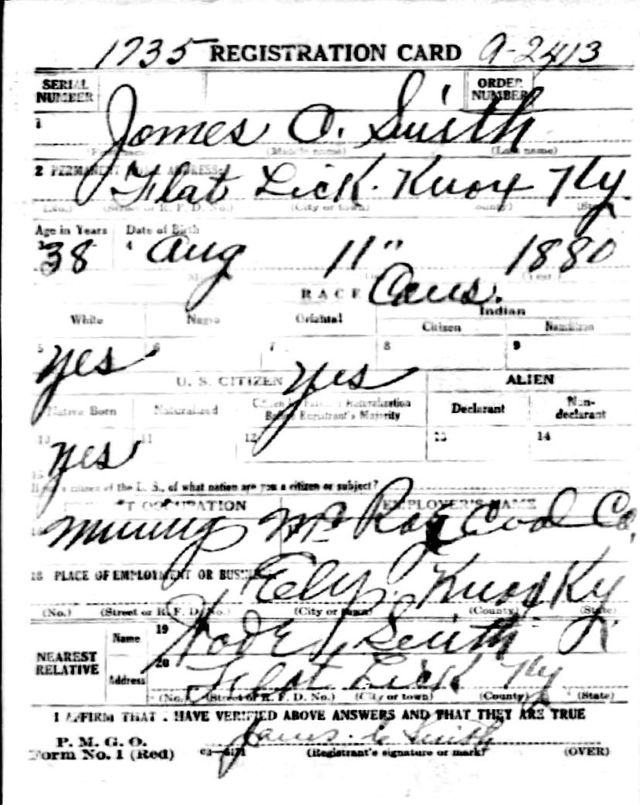 1735 REGISTRATION CARD A-2413
SERIAL NUMBER ORDER NUMBER
1 James O. Smith
(Middle name) (Last name)
2 PERMANENT HOME ADDRESS:
Flat Lick Knox Ky.
(No.) (Street or R. F. D. No.) (City or town) (County) (State)
Age in Years Date of Birth
3 38 4 Aug 11" 1880
RACE Caus.
White Negro Oriental Indian
Citizen Noncitizen
5 yes 6 7 8 9
U. S. CITIZEN yes ALIEN
Native Born Naturalized Citizen by Father's Naturalization Before Registrant's Majority Declarant Non-declarant
10 yes 11 12 13 14
15
If not a citizen of the U. S., of what nation are you a citizen or subject?
PRESENT OCCUPATION EMPLOYER'S NAME
16 Mining Coal Co.
18 PLACE OF EMPLOYMENT OR BUSINESS:
Ely Knox Ky
(No.) (Street or R. F. D. No.) (City or town) (County) (State)
NEAREST RELATIVE Name 19 Smith
Address 20 Flat Lick Ky
(No.) (Street or R. F. D. No.) (City or town) (County) (State)
I AFFIRM THAT I HAVE VERIFIED ABOVE ANSWERS AND THAT THEY ARE TRUE
P. M. G. O.
Form No. 1 (Red) James Smith
(Registrant's signature or mark) (OVER)